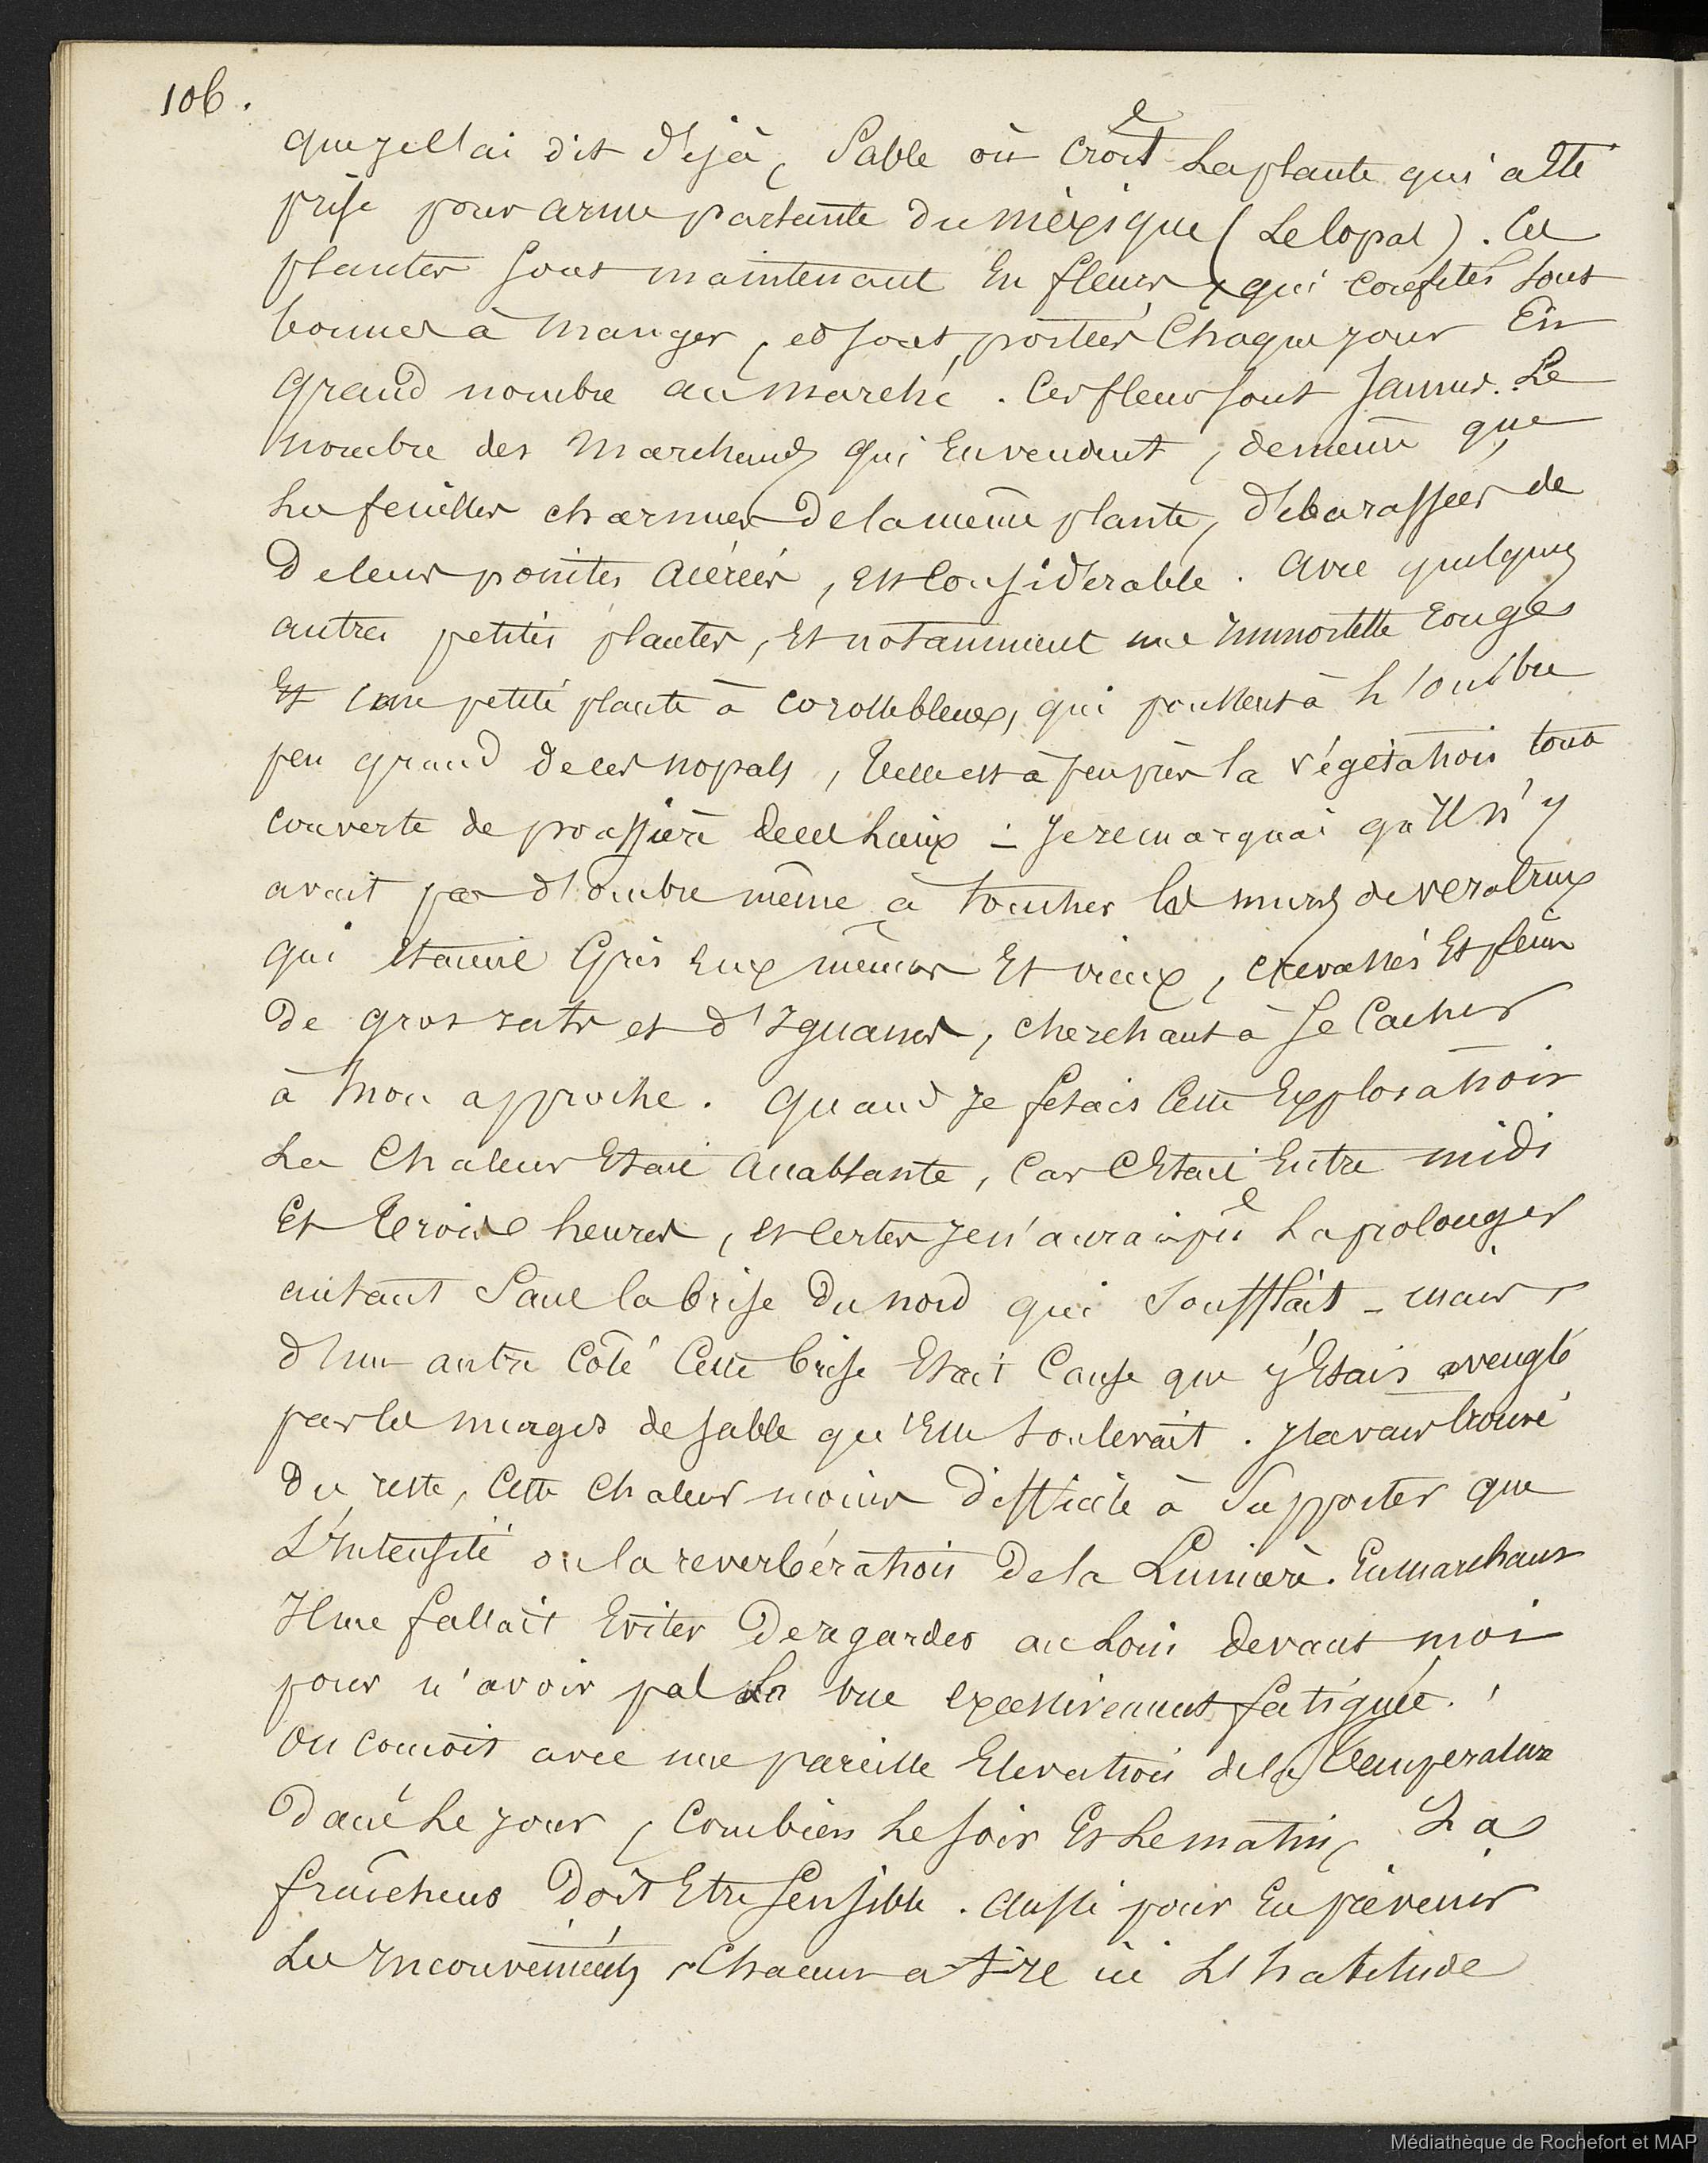 106.
que je l'ai dit déjà, Sable où croît La plante qui a été
prise pour arme parlante du méxique (Le lopal). Ces
plantes sont maintenant En fleurs, qui confites sont
bonnes à manger, et sont portées Chaque jour En
grand nombre au marché. Ces fleurs sont Jaunes. Le
nombre des Marchands qui En vendent, de même que
Les feuilles charnues de la même plante, débarassées de
De leurs pointes acérées, est Considérable. Avec quelques
autres petites plantes, Et notamment une Immortelle rouge
Et une petite plante à corolle bleues, qui poussent à L'ombre
peu grand de ces nopals, telle est à peu près la végétation tout
couverte de poussière de ces Lieux - Je remarquai qu'Il n'y
avait pas d'ombre même à toucher les murs de veracrux
qui Etaient Gris Eux mêmes Et vieux, crevassés Et pleins
De gros rats et d'Iguanes, cherchant à Se Cacher
à Mon approche. Quand Je fesais Cette Exploration
La Chaleur Etait accablante, Car C'Etait Entre midi
Et trois heures, et Certes Je n'aurais pû La prolonger
autant Sans la brise Du nord qui Soufflait - mais
d'un autre Côté Cette brise Etait Cause que j'Etais aveuglé
par les nuages de sable qu'Elle Soulevait. J'avais trouvé
Du reste, Cette Chaleur moins difficile à Supporter que
L'Intensité ou la reverbération De la Lumière. En marchant
Il me fallait Eviter De regarder au Loin devant moi
pour n'avoir pas La vue excessivement fatiguée.
On conçoit avec une pareille Elevation de la température
Dans Le jour, Combien Le soir Et Le matin, La
fraîcheur Doit Etre Sensible. Aussi pour En prévenir
Les Inconvénients, Chacun a-t-il ici L'habitude
Médiathèque de Rochefort et MAP